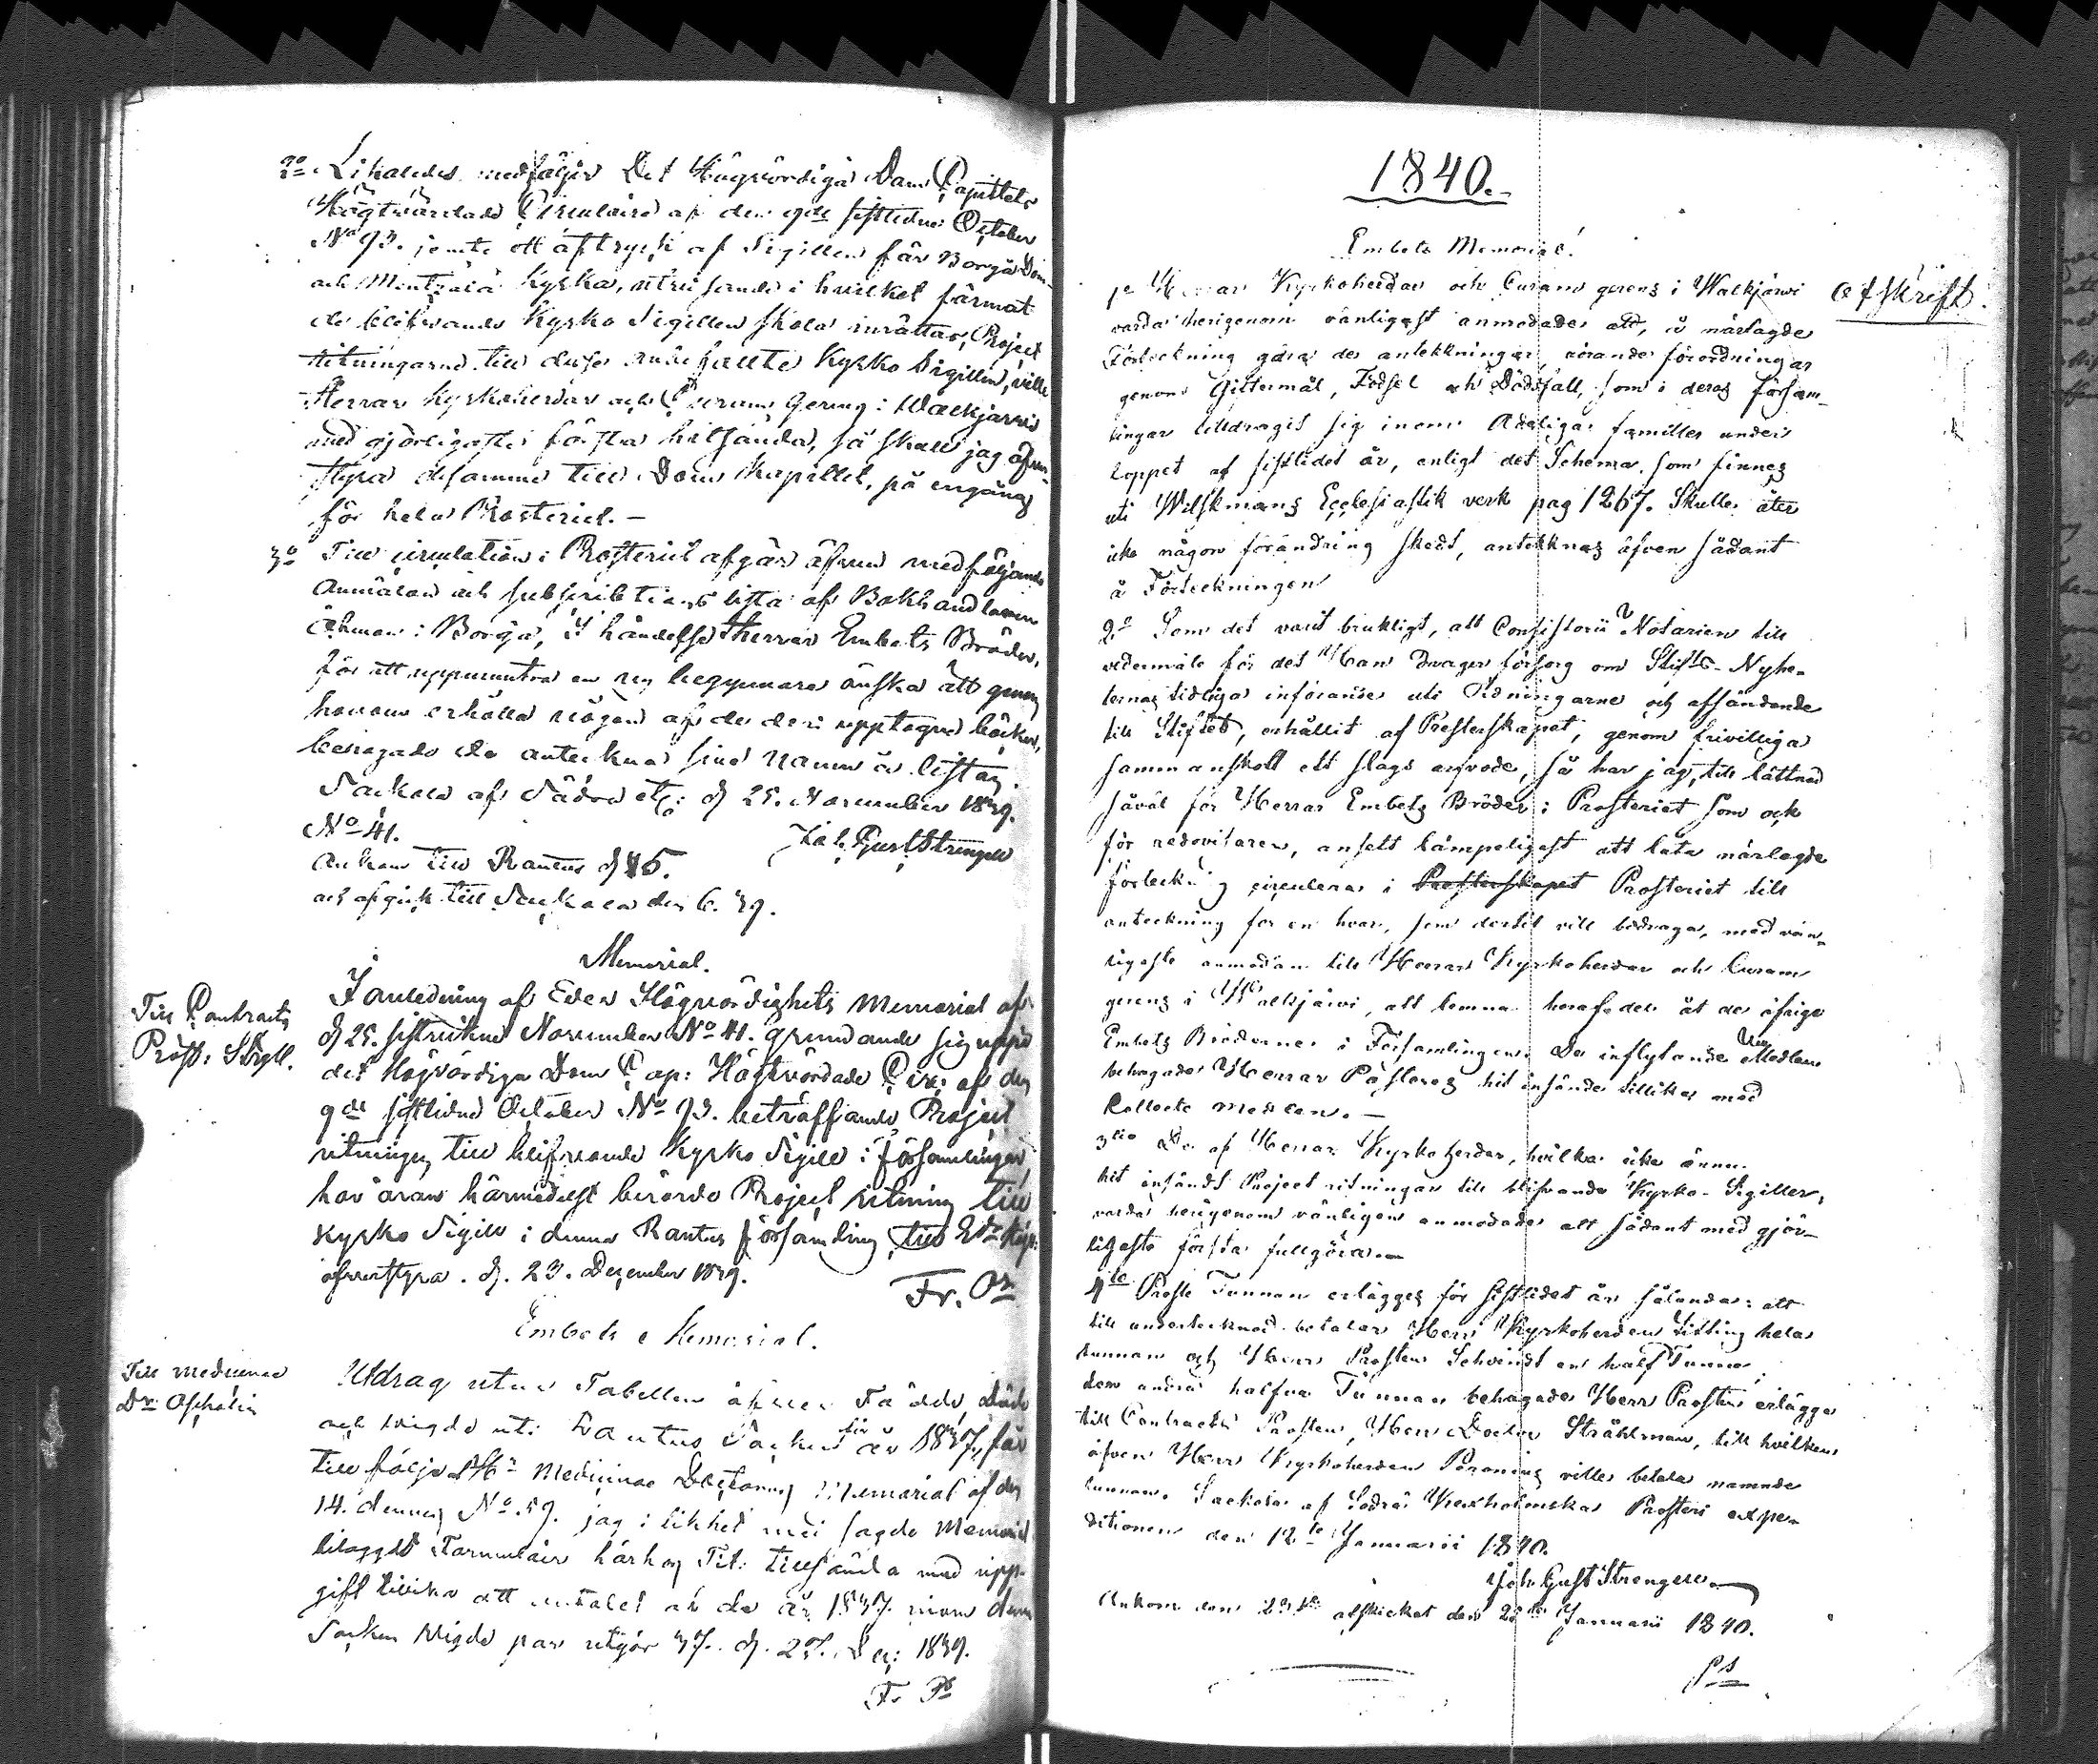 2o Likaledes medföljer Det Högvördiga Dom Capitlets
Högtvärdade Circulaire af den 9de sistledne October
No 93. jemte ett aftryck af Sigillen för Borgå Dom-
och Mentzälä Kyrka, utvisande i hvilket format
de blifvande Kyrko Sigillen skola inrättas, Project
ritningarne till dessa Kyrko Sigillen, ville
Herrar Kyrkoherdar och Curam Gerens i Walkjärvi
med gjörligaste första hitsända, så skall jag äfven
styra desamma till Dom Kapitlet, på engång
för hela Prosteriet. —
3o Till circulation i Prosteriet afgår äfven medföljande
Anmälan och subscriptions lista af Bokhandlaren
Öhman i Borgå, I händelse Herrar Embets Bröder,
för att uppmuntra en ny begynnare önska att genom
honom erhålla någon af de deri upptagne böcker,
behagade de anteckna sine namn å listan.
Sackola af Södra etc: d 25. November 1839.
No 41.
Joh. Gust Strengell
Ankom till Rautus d 5.
och afgick till Sackola den 6. 39.
Memorial.
Till Contracts
Prost: Strgll.
I anledning af Eder Högvördighets Memorial af
d 25. sistvikne November No 41. grundande sig uppå
det Högvördiga Dom Cap: Högtvördade Circ: af den
9de sistledne October No 93. beträffande Project
ritningen till blifvande Kyrko Sigill i församlingen
har äran härmedelst berörde Project ritning till
Kyrko Sigill i denna Rautus församling till Edr Högv:
öfverstyra. d. 23. December 1839.
Fr. Ps
Embets Memorial.
Till Medicinae
Dr: Ascholin
Utdrag utur Tabellen öfver Födde, Döde
och Wigde uti Rautus Socken för år 1837, får
till följe af Hr Medicinae Doctorns Memorial af den
14. dennes No 59. jag i likhet med sagde Memorial
bilaggdt Formulair härhos Tit: tillsända med upp-
gift tillika att antalet af de år 1837 inom denna
Socken Wigde par utgör 37. d. 27. Dec: 1839.
Fr Ps
1840.
Embets Memorial!
Afskrift.
1o Herrar Kyrkoherdar och Curam gerens i Walkjärvi
varda herigenom vänligast anmodade att, å närlagde
Förteckning göra de anteckningar rörande förändringar
genom Giftermål, Födsel och Dödsfall, som i deras försam-
lingar tilldragit sig inom Adeliga familler under
loppet af sistlidet år, enligt det Schema som finnes
uti Wilskmans Ecclesiastik verk pag 1267. Skulle åter
icke någon förändring skedt, antecknas äfven sådant
å Förteckningen
2o Som det varit brukligt, att Consistorii Notarien till
vedermäle för det Han drager försorg om Stifts-Nyhe-
ternas tidliga införande uti Tidningarne och afsändande
till Stiftet, erhållit af Presterskapet, genom frivilliga
sammanskott ett slags arfvode, så har jag, till lättnad
såväl för Herrar Embets Bröder i Prosteriet som ock
för redovisaren, ansett lämpeligast att låta närlagde
förteckning circulera i Presterskapet Prosteriet till
anteckning för en hvar, som dertill vill bidraga, med vän-
ligaste anmodan till Herrar Kyrkoherdar och Curam
gerens i Walkjärvi, att lemna heraf del åt de öfrige
Embets Bröderne i Församlingen. De inflytande Medlen
behagade Herrar Pastores hit insända tillika med
Collecte medlen. —
3tio De af Herrar Kyrkoherdar, hvilka icke ännu
hit insändt Project ritningar till blifvande Kyrko-Sigiller,
varda herigenom vänligen anmodade att sådant med gjör-
ligaste första fullgöra. —
4to Proste Tunnan erlägges för sistlidet år sålunda: att
till undertecknad betalar Herr Kyrkoherden Sittling hela
tunnan och Herr Prosten Schvindt en half Tunna;
den andra halfva Tunnan behagade Herr Prosten erlägga
till Contracts Prosten, Herr Doctor Stråhlman, till hvilken
äfven Herr Kyrkoherden Poroning ville betala namnde
tunnan. Sackola af Södra Kexholmska Prosteri expe-
ditionen den 12te Januarii 1840.
Joh. Gust Strengell
Ankom den 23de afskickat den 28de Januarii 1840.
Ps